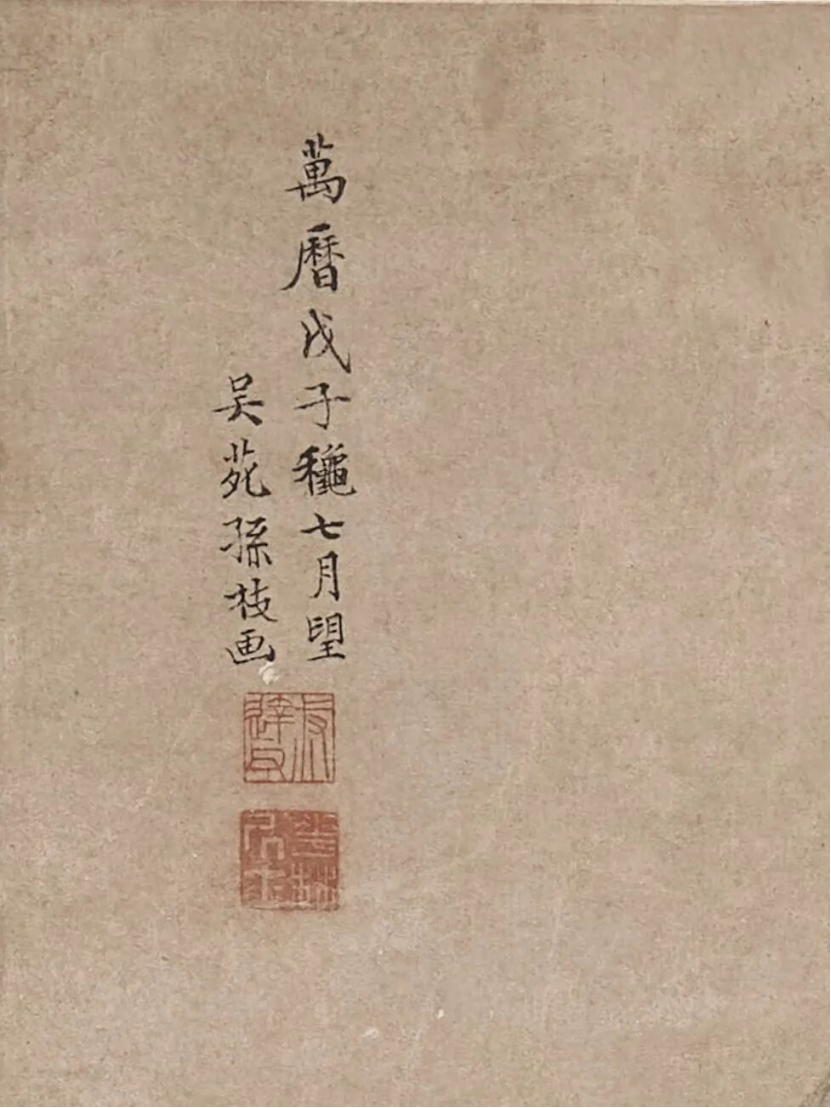 萬曆戊子穐七月朢
吴苑孫枝画